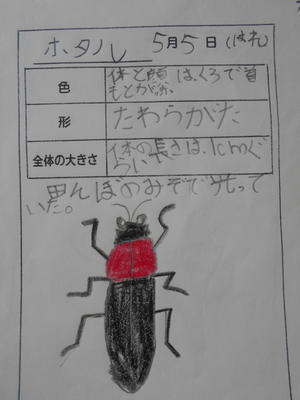 ホタル 5月5日(はれ)
色 体と顔は、くろで首
もとが赤
形 たわらがた
全体の大きさ 体の長さは、1cmぐ
らい
田んぼのみぞで光って
いた。